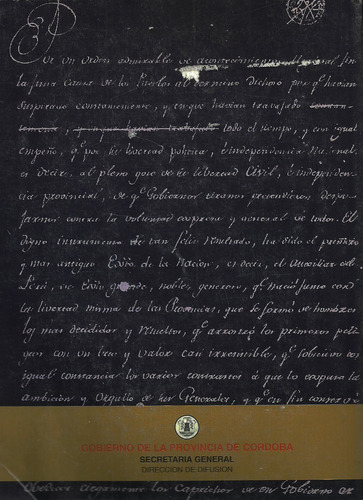 De un orden admirable de acontecimientos el general fin
la justa causa de los Pueblos al termino dichoso por qe. havian
suspirado constantemente, y en que havian trabajado
todo el tiempo, y con igual
empeño, qe. por la libertad politica, é independencia Nacional:
es decir, al pleno goce de la libertad Civil, é independen
cia provincial, de qe. Gobiernos tiranos pretendieron despo
jarnos contra la voluntad expresa y general de todos. El
digno instrumento de tan feliz resultado, ha sido el
y mas antiguo Exto. de la Nacion, es decir, el Auxiliar del
Perú, ese Exto. grande, noble, generoso, qe. nació junto con
la libertad misma de las Provincias, que se formo de hombres
los mas decididos y resueltos, qe. arrostró los primeros peli
gros con un tren y valor tan irresistible, qe. sobrevino con
igual constancia los varios contrarios á que lo expuso la
ambicion y orgullo de sus Generales, y qe. en fin conservó
GOBIERNO DE LA PROVINCIA DE CORDOBA
SECRETARIA GENERAL
DIRECCION DE DIFUSION
los Caprichos de un Gobierno